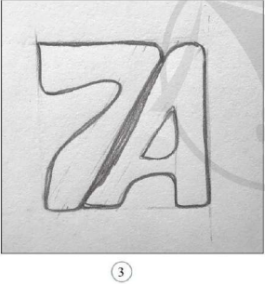 7A
③